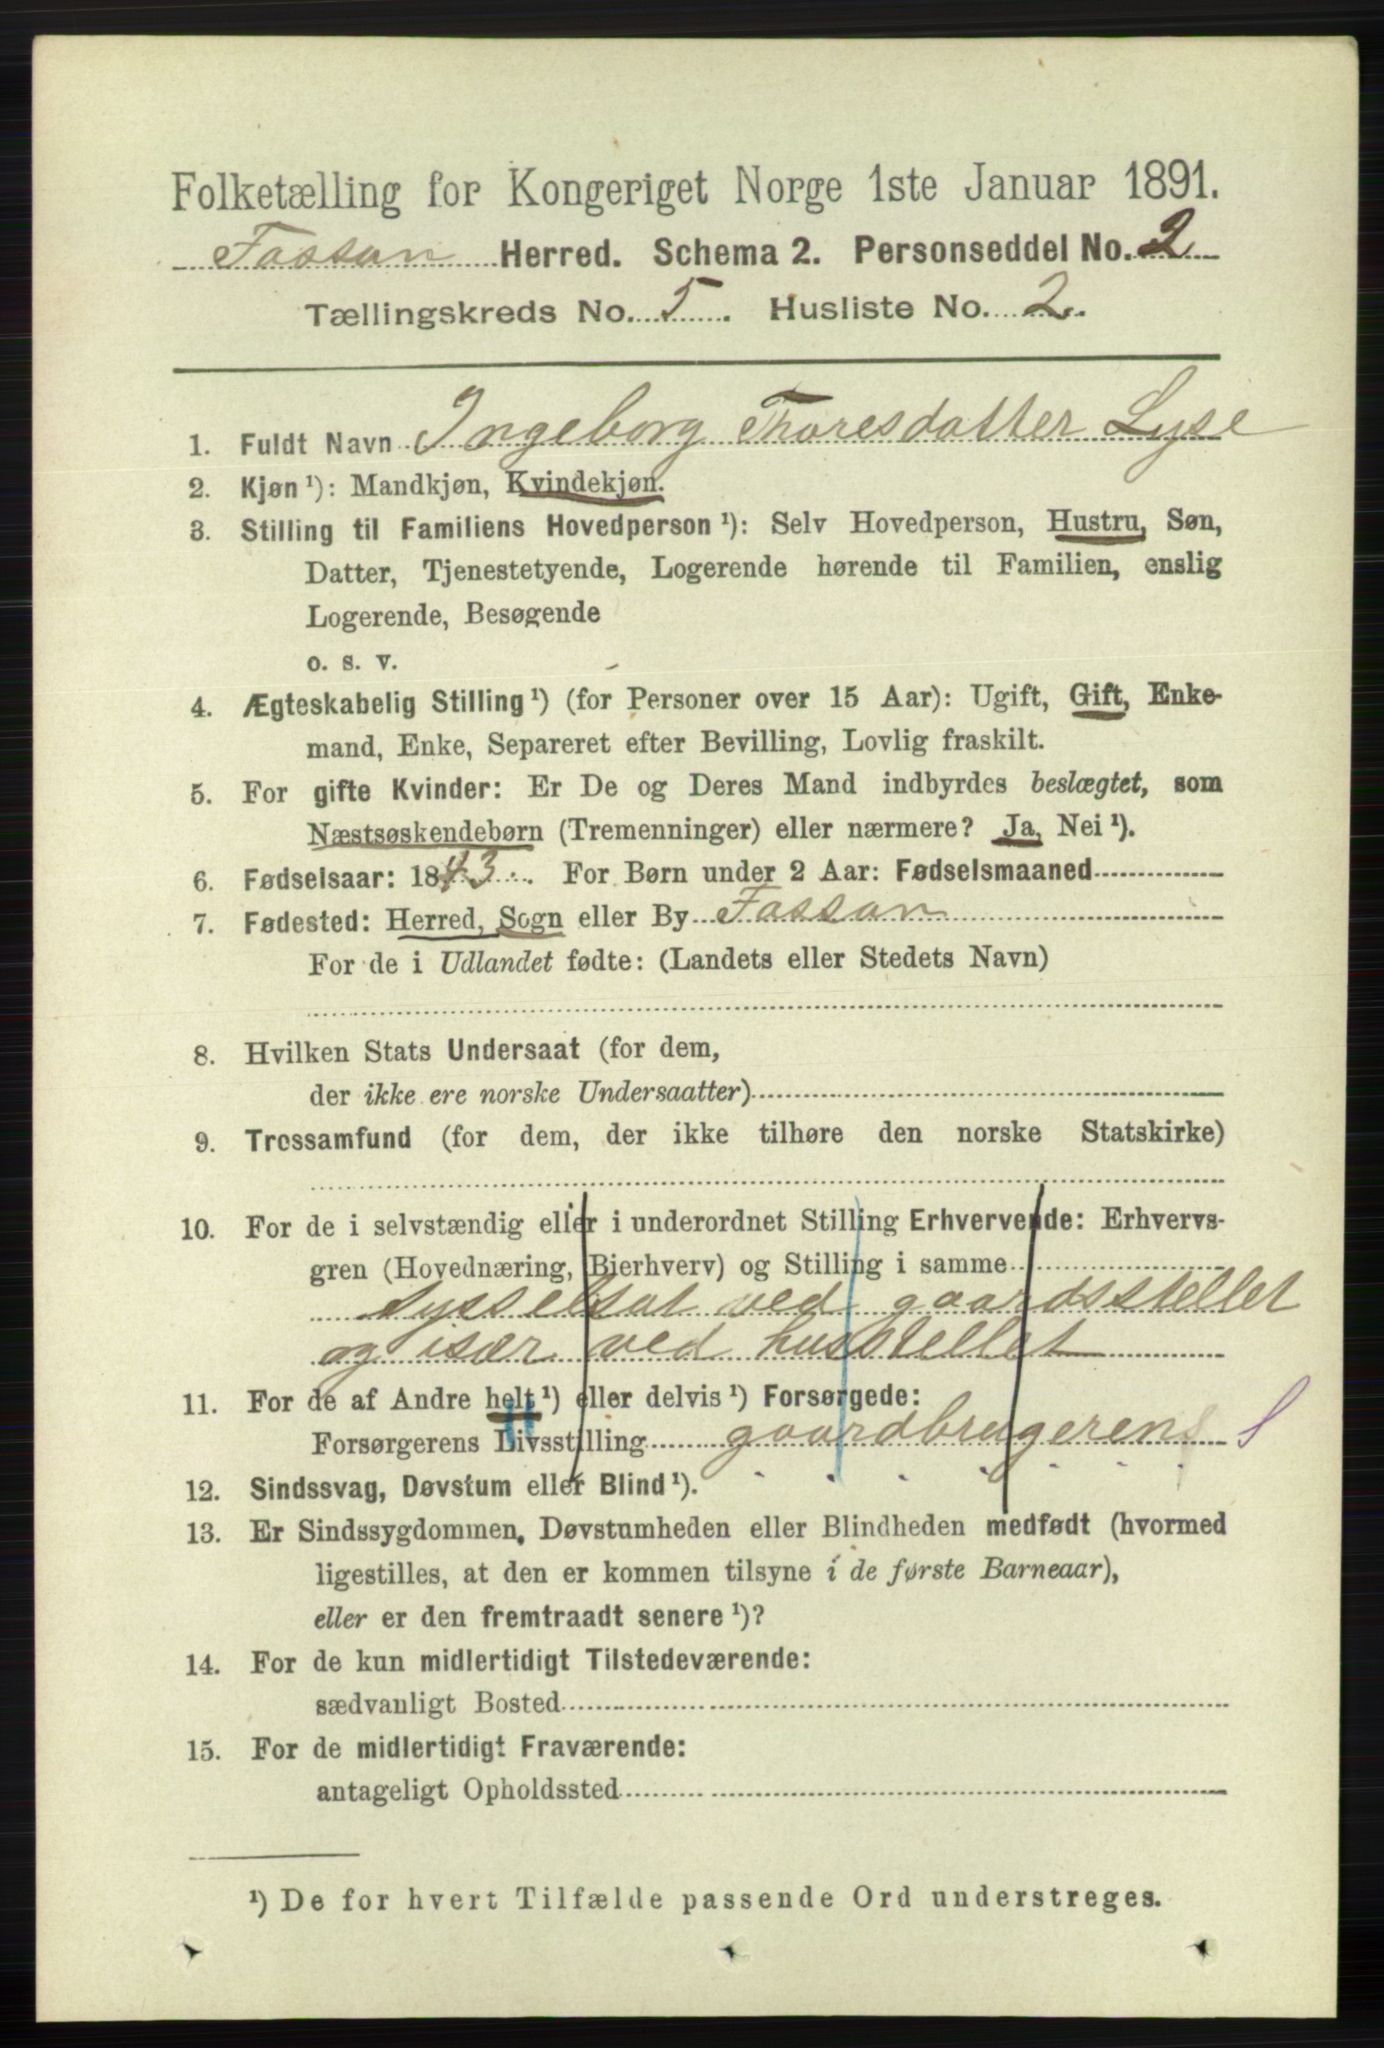 Folketælling for Kongeriget Norge 1ste Januar 1891.
Fossan Herred. Schema 2. Personseddel No. 2
Tællingskreds No. 5. Husliste No. 2.
1. Fuldt Navn Ingeborg Thoresdatter Lyse
2. Kjøn ¹): Mandkjøn, Kvindekjøn.
3. Stilling til Familiens Hovedperson ¹): Selv Hovedperson, Hustru, Søn,
Datter, Tjenestetyende, Logerende hørende til Familien, enslig
Logerende, Besøgende
o. s. v.
4. Ægteskabelig Stilling ¹) (for Personer over 15 Aar): Ugift, Gift, Enke-
mand, Enke, Separeret efter Bevilling, Lovlig fraskilt.
5. For gifte Kvinder: Er De og Deres Mand indbyrdes beslægtet, som
Næstsøskendebørn (Tremenninger) eller nærmere? Ja, Nei ¹).
6. Fødselsaar: 1843. For Børn under 2 Aar: Fødselsmaaned
7. Fødested: Herred, Sogn eller By Fossan
For de i Udlandet fødte: (Landets eller Stedets Navn)
8. Hvilken Stats Undersaat (for dem,
der ikke ere norske Undersaatter)
9. Trossamfund (for dem, der ikke tilhøre den norske Statskirke)
10. For de i selvstændig eller i underordnet Stilling Erhvervende: Erhvervs-
gren (Hovednæring, Bierhverv) og Stilling i samme
sysselsat ved gaardsstellet
og især ved husstellet
11. For de af Andre helt ¹) eller delvis ¹) Forsørgede:
Forsørgerens Livsstilling gaardbrugerens S
12. Sindssvag, Døvstum eller Blind ¹).
13. Er Sindssygdommen, Døvstumheden eller Blindheden medfødt (hvormed
ligestilles, at den er kommen tilsyne i de første Barneaar),
eller er den fremtraadt senere ¹)?
14. For de kun midlertidigt Tilstedeværende:
sædvanligt Bosted
15. For de midlertidigt Fraværende:
antageligt Opholdssted
¹) De for hvert Tilfælde passende Ord understreges.